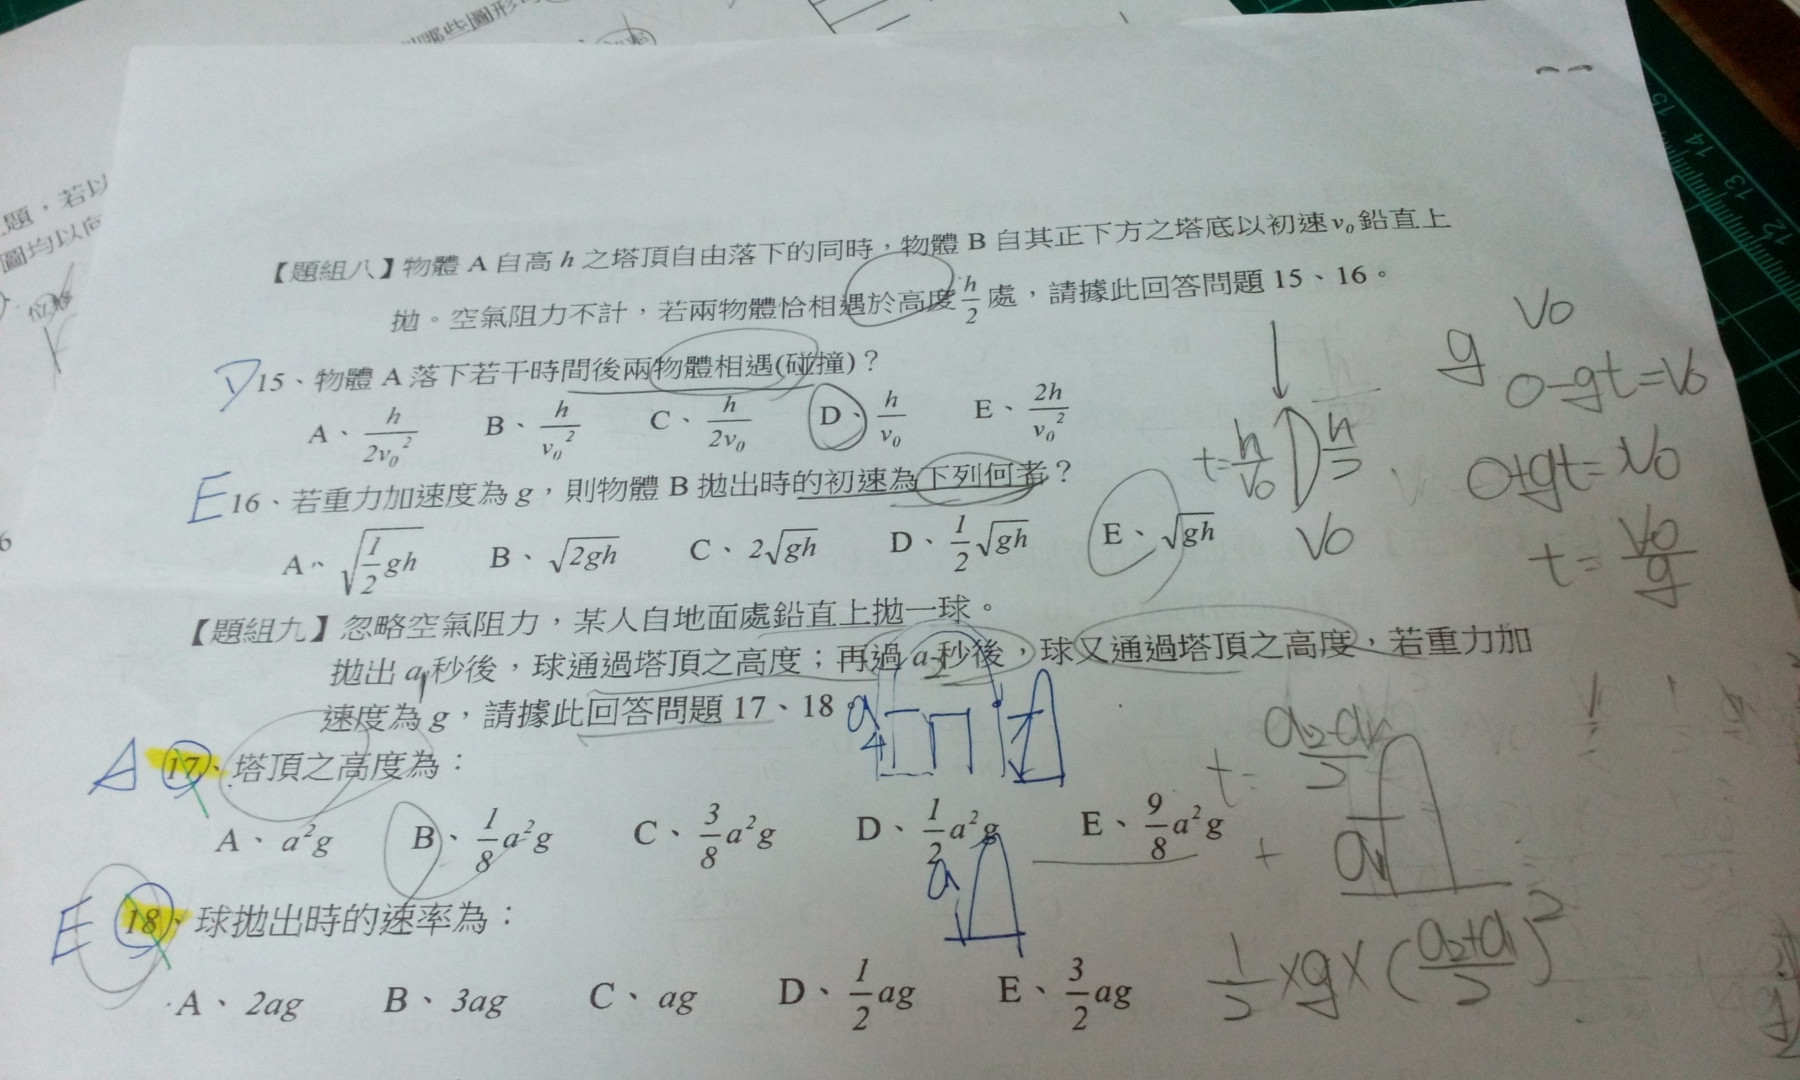 哪些圖形
題,若以
圖均以向
位移
【題組八】物體 A 自高 h 之塔頂自由落下的同時,物體 B 自其正下方之塔底以初速 v₀ 鉛直上
拋。空氣阻力不計,若兩物體恰相遇於高度 h/2 處,請據此回答問題 15、16。
D 15、物體 A 落下若干時間後兩物體相遇(碰撞)?
A、h/2v₀² B、h/v₀² C、h/2v₀ D、h/v₀ E、2h/v₀²
E 16、若重力加速度為 g,則物體 B 拋出時的初速為下列何者?
A、√(1/2 gh) B、√2gh C、2√gh D、1/2 √gh E、√gh
【題組九】忽略空氣阻力,某人自地面處鉛直上拋一球。
拋出 a₁ 秒後,球通過塔頂之高度;再過 a₂ 秒後,球又通過塔頂之高度,若重力加
速度為 g,請據此回答問題 17、18。
A 17、塔頂之高度為:
A、a²g B、1/8 a²g C、3/8 a²g D、1/2 a²g E、9/8 a²g
E 18、球拋出時的速率為:
A、2ag B、3ag C、ag D、1/2 ag E、3/2 ag
V₀
g
0-gt=V₀
0+gt=V₀
t=V₀/g
t=h/V₀
h/2
V₀
t=(a₂-a₁)/2
+
a₁
1/2×g×((a₂+a₁)/2)²
a
a
15
14
13
12
6